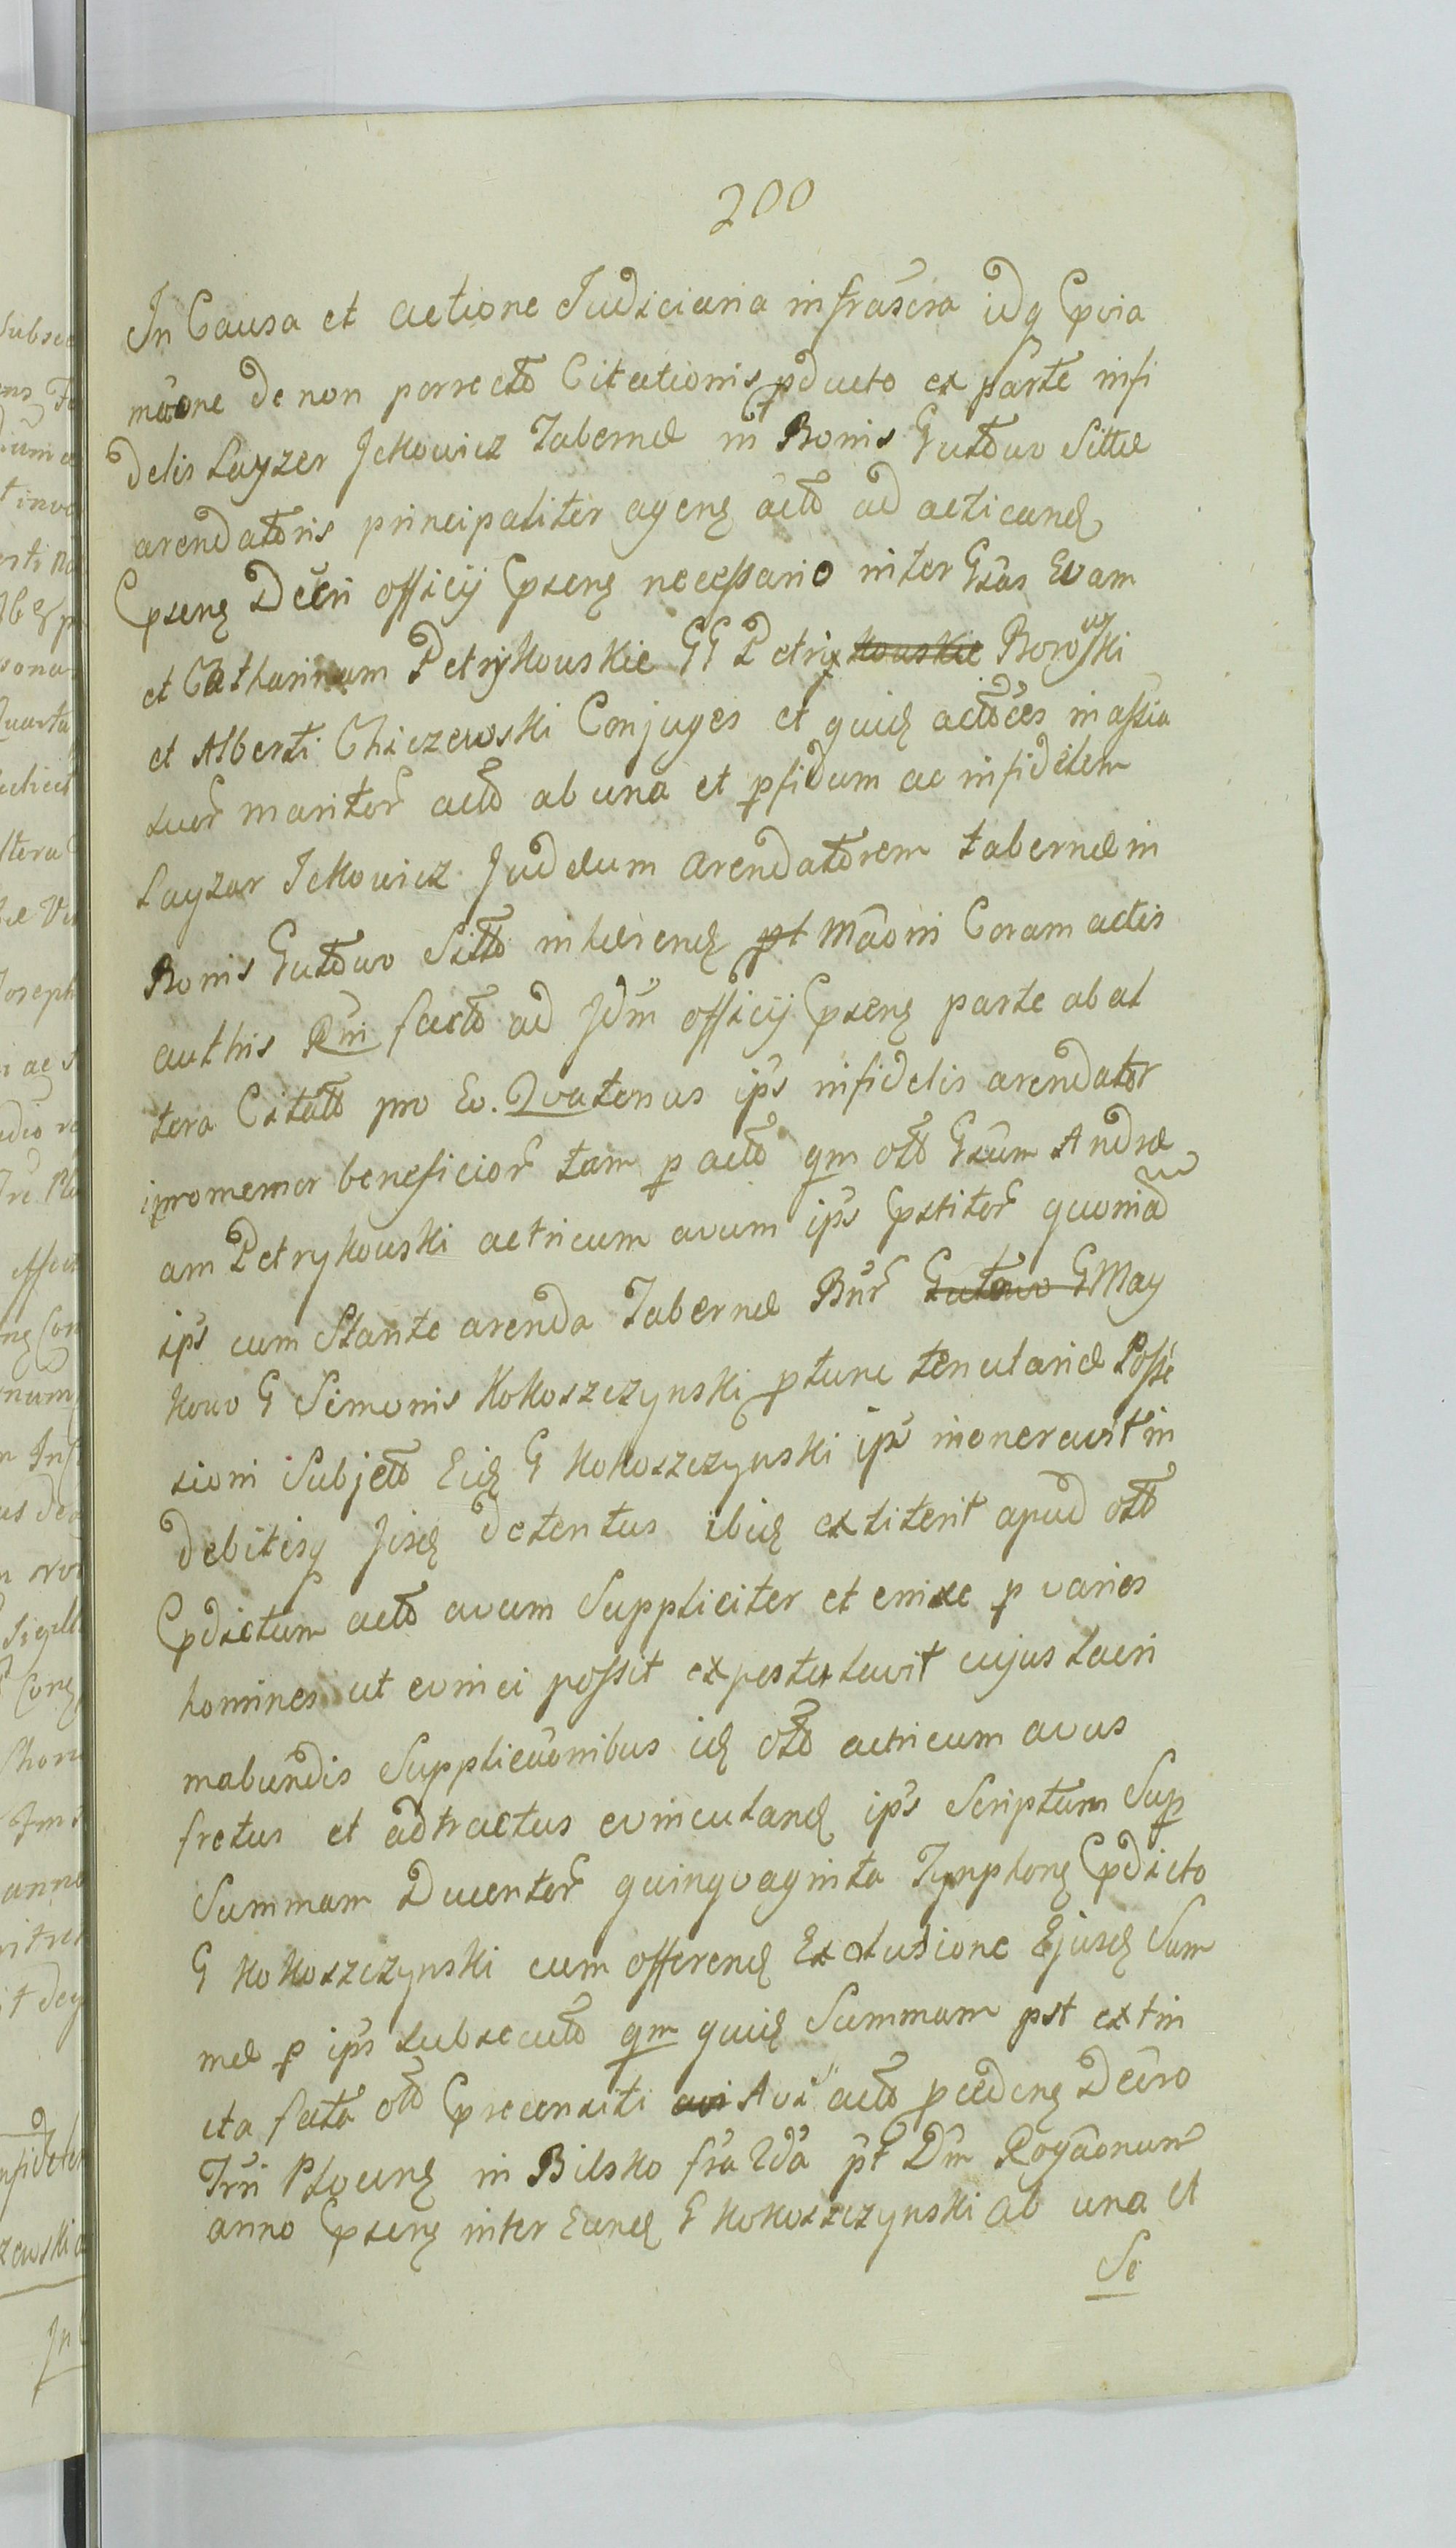 200
In Causa et actione Judiciaria infrascra idq Cpvia
mõone de non porrecto Citationis pducto ex parte infi
delis Layzer Jckowicz Tabernæ in Bonis Gutowo Sittæ
arendatoris principaliter agenę acto ad acticandę
Cpsenę Decri officij Cpsenę necessario inter Gsas Evam
et Catharinam Petrykowskie GG Petri Borowski
et Alberti Chiczewski Conjuges et quidę actoces in assia
suor maritor acto ab una et pfidum ac infidelem
Layzar Jckowicz Judæum arendatorem tabernæ in
Bonis Gutowo Sitto inhærendę pt Mãoni Coram actis
authis Rni facto ad Jdm officij Cpsenę parte ab al
tera Citato pro Eo. Quatenus ips infidelis arendator
immemor beneficior tam p acto qm olo Gsum Andræ
am Petrykowski actricum avum ips Cpstitor quoniã
ips cum Stante arenda Tabernæ Bnr Gutowo G May
kowo G Simonis Kokoszczynski ptunc tenutariæ Posse
sioni Subjecto Eidę G Kokoszczynski ips inoneravit in
debitisq Jisdę detentus ibidę extiterit apud olo
Cpdictum acto avum Suppliciter et enixe p varios
homines ut evinci possit expostulavit cujus lacri
mabundis Supplicãonibus idę olo actricum avus
fretus et adtractus evinculandę ips Scriptum Sup
Summam Ducentor quinquaginta Tynphonę Cpdicto
G Kokoszczynski cum offerendę Exolutione Ejusdę Sum
mæ p ips subsecuto qm quidę Summam pst extin
cta fata olo Cprecensiti Avi acto pcedenę Decro
Trn Plocenę in Bilsko fra 2da pt Dm Rogãonum
anno Cpsenę inter Eundę G Kokoszczynski ab una et
Se